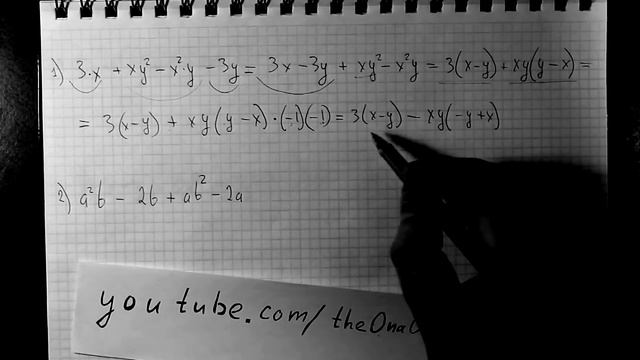 1) 3·x + xy² − x²·y − 3y = 3x − 3y + xy² − x²y = 3(x−y) + xy(y−x) =
= 3(x−y) + xy(y−x)·(−1)(−1) = 3(x−y) − xy(−y+x)
2) a²b − 2b + ab² − 2a
youtube.com/theOna